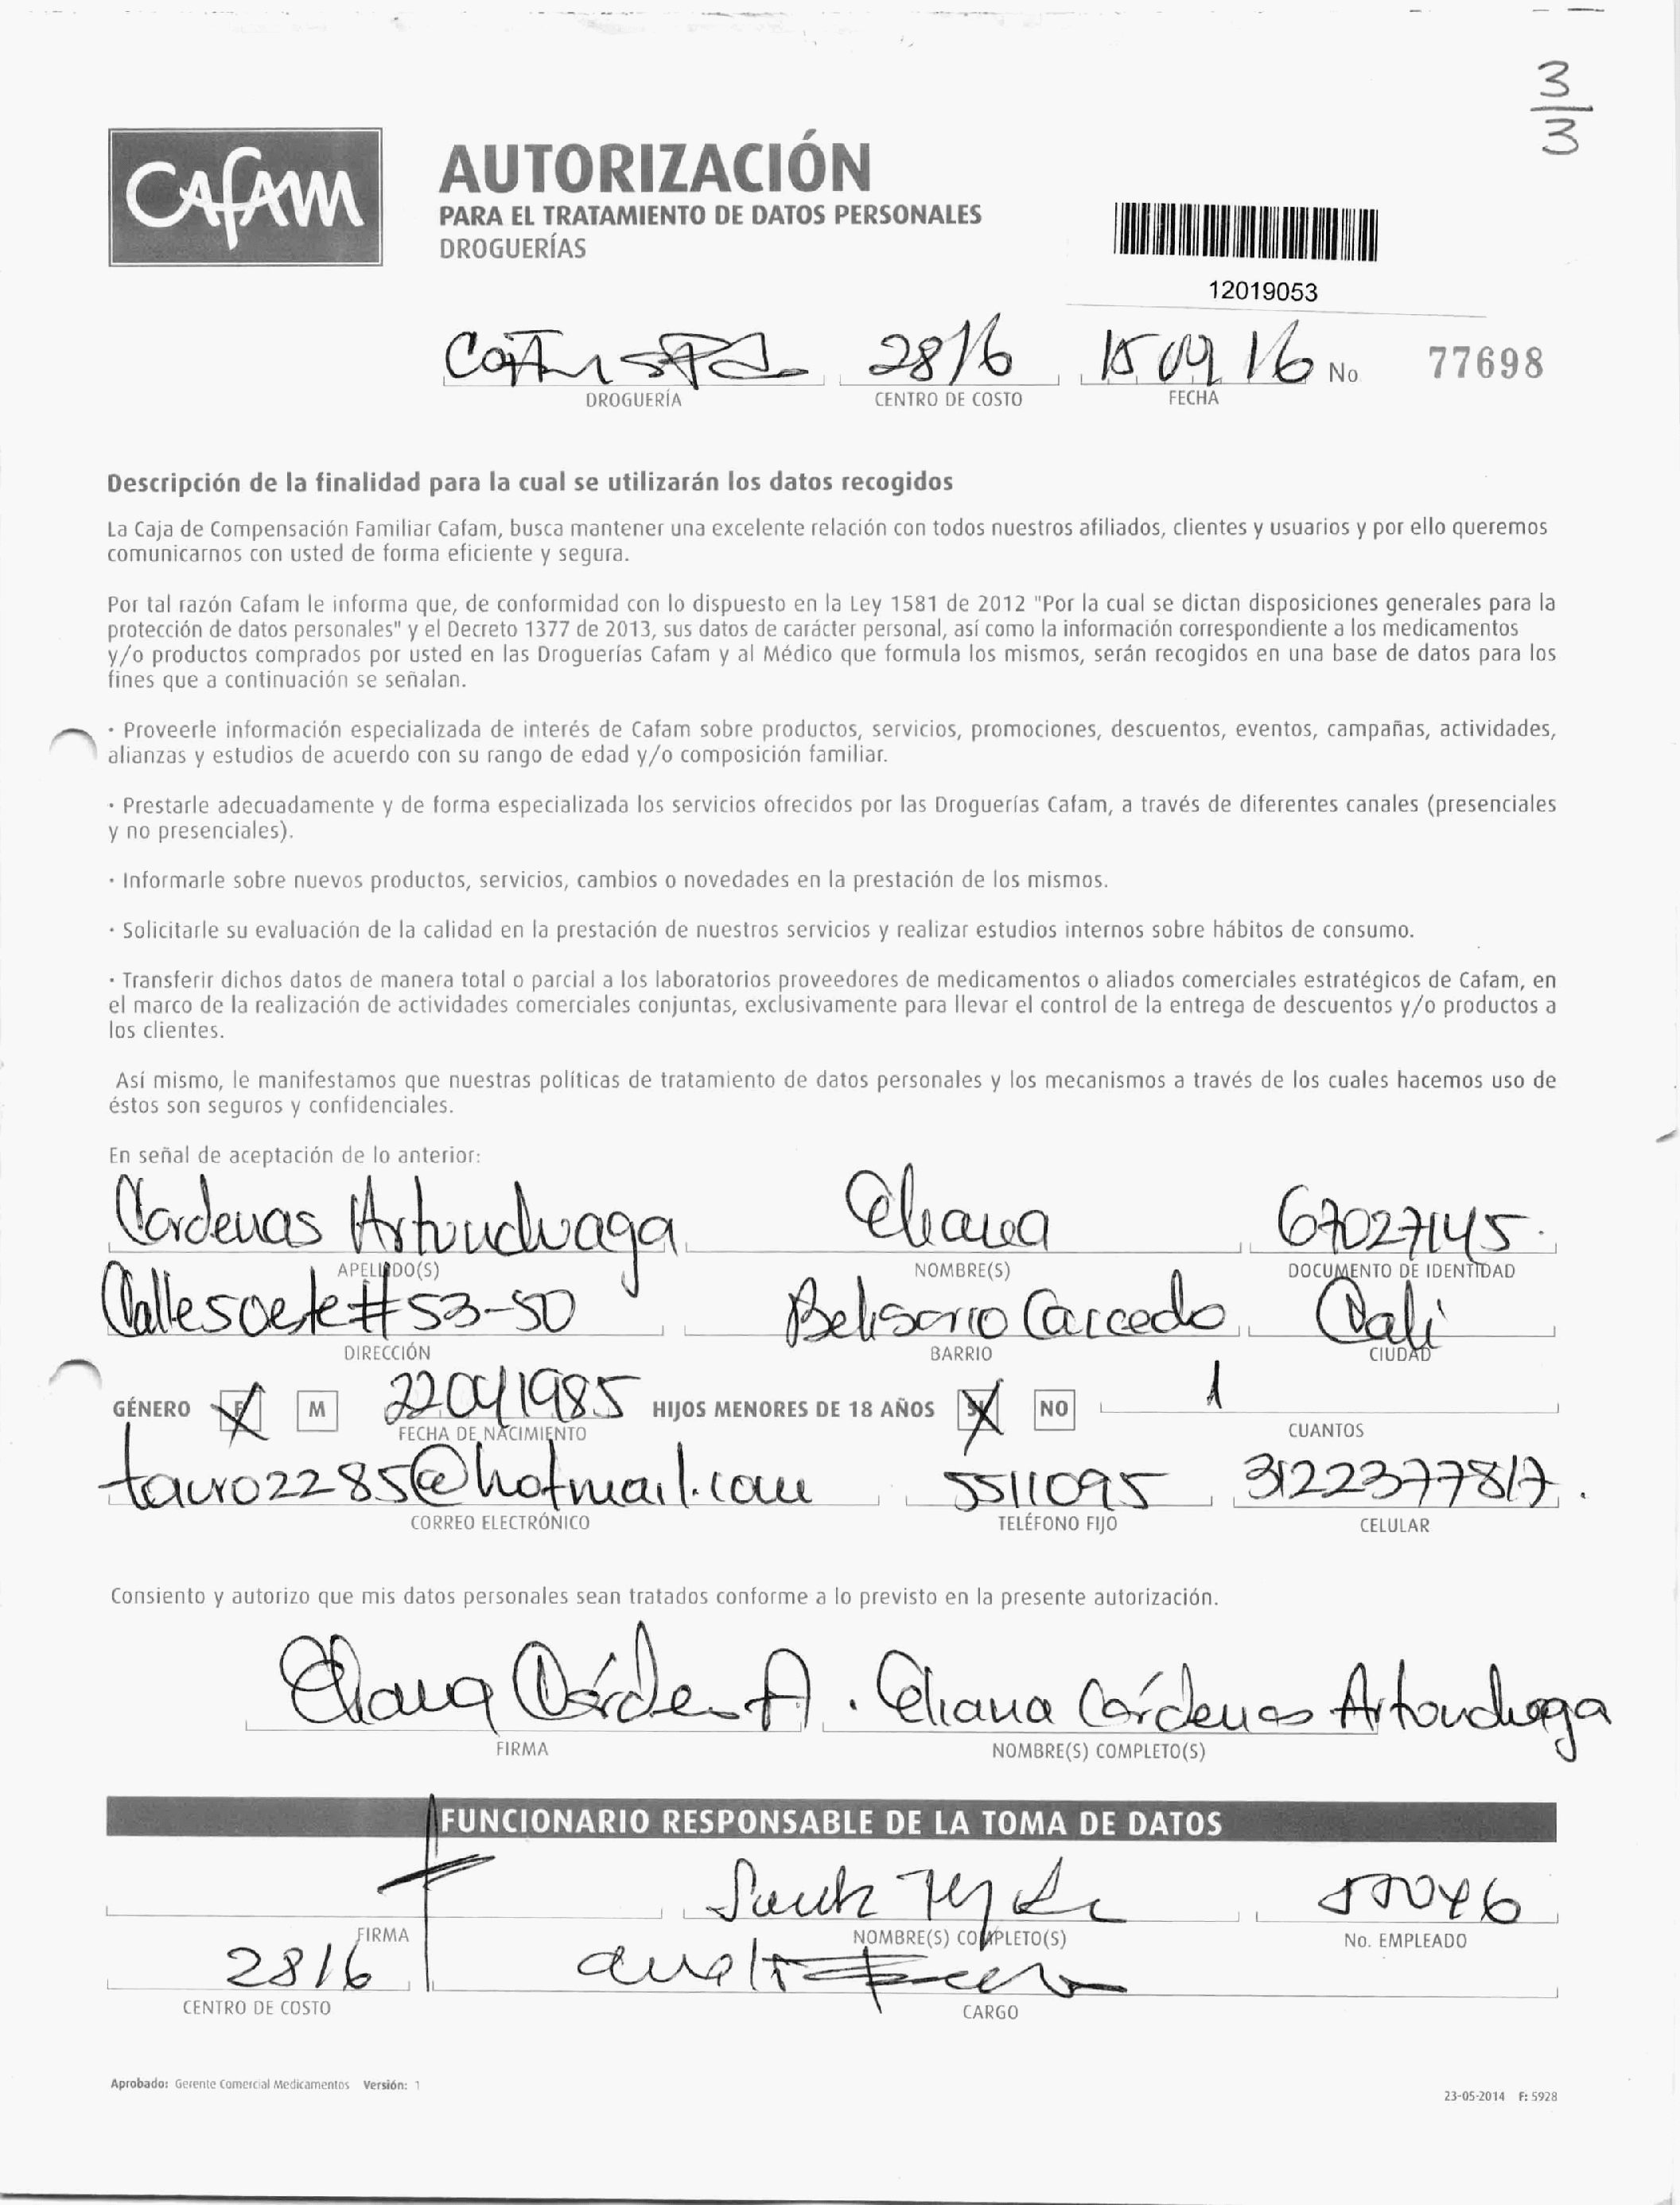 3/3
CAFAM
AUTORIZACIÓN
PARA EL TRATAMIENTO DE DATOS PERSONALES
DROGUERÍAS
12019053
2816 15 09 16 No 77698
DROGUERÍA CENTRO DE COSTO FECHA
Descripción de la finalidad para la cual se utilizarán los datos recogidos
La Caja de Compensación Familiar Cafam, busca mantener una excelente relación con todos nuestros afiliados, clientes y usuarios y por ello queremos
comunicarnos con usted de forma eficiente y segura.
Por tal razón Cafam le informa que, de conformidad con lo dispuesto en la Ley 1581 de 2012 "Por la cual se dictan disposiciones generales para la
protección de datos personales" y el Decreto 1377 de 2013, sus datos de carácter personal, así como la información correspondiente a los medicamentos
y/o productos comprados por usted en las Droguerías Cafam y al Médico que formula los mismos, serán recogidos en una base de datos para los
fines que a continuación se señalan.
· Proveerle información especializada de interés de Cafam sobre productos, servicios, promociones, descuentos, eventos, campañas, actividades,
alianzas y estudios de acuerdo con su rango de edad y/o composición familiar.
· Prestarle adecuadamente y de forma especializada los servicios ofrecidos por las Droguerías Cafam, a través de diferentes canales (presenciales
y no presenciales).
· Informarle sobre nuevos productos, servicios, cambios o novedades en la prestación de los mismos.
· Solicitarle su evaluación de la calidad en la prestación de nuestros servicios y realizar estudios internos sobre hábitos de consumo.
· Transferir dichos datos de manera total o parcial a los laboratorios proveedores de medicamentos o aliados comerciales estratégicos de Cafam, en
el marco de la realización de actividades comerciales conjuntas, exclusivamente para llevar el control de la entrega de descuentos y/o productos a
los clientes.
Así mismo, le manifestamos que nuestras políticas de tratamiento de datos personales y los mecanismos a través de los cuales hacemos uso de
éstos son seguros y confidenciales.
En señal de aceptación de lo anterior:
Cardenas Artunduaga Eliana 67027145.
APELLIDO(S) NOMBRE(S) DOCUMENTO DE IDENTIDAD
Calle 5 oeste # 53-50 Belisario Caicedo Cali
DIRECCIÓN BARRIO CIUDAD
GÉNERO F M 22041985 HIJOS MENORES DE 18 AÑOS SI NO 1
FECHA DE NACIMIENTO CUANTOS
tauro2285@hotmail.com 5511095 3122377817.
CORREO ELECTRÓNICO TELÉFONO FIJO CELULAR
Consiento y autorizo que mis datos personales sean tratados conforme a lo previsto en la presente autorización.
Eliana Cárdenas A. Eliana Cárdenas Artunduaga
FIRMA NOMBRE(S) COMPLETO(S)
FUNCIONARIO RESPONSABLE DE LA TOMA DE DATOS
FIRMA NOMBRE(S) COMPLETO(S) No. EMPLEADO
2816
CENTRO DE COSTO CARGO
Aprobado: Gerente Comercial Medicamentos Versión: 1
23-05-2014 F: 5928